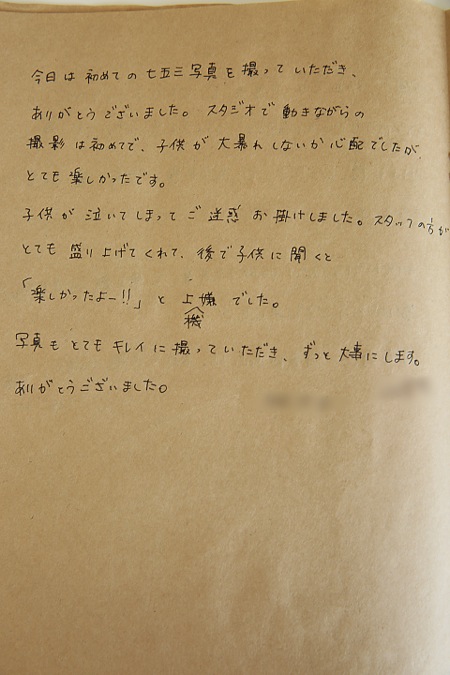 今日は初めての七五三写真を撮っていただき、
ありがとうございました。スタジオで動きながらの
撮影は初めてで、子供が大暴れしないか心配でしたが、
とても楽しかったです。
子供が泣いてしまってご迷惑お掛けしました。スタッフの方が
とても盛り上げてくれて、後で子供に聞くと
「楽しかったよー!!」と上機嫌でした。
写真もとてもキレイに撮っていただき、ずっと大事にします。
ありがとうございました。